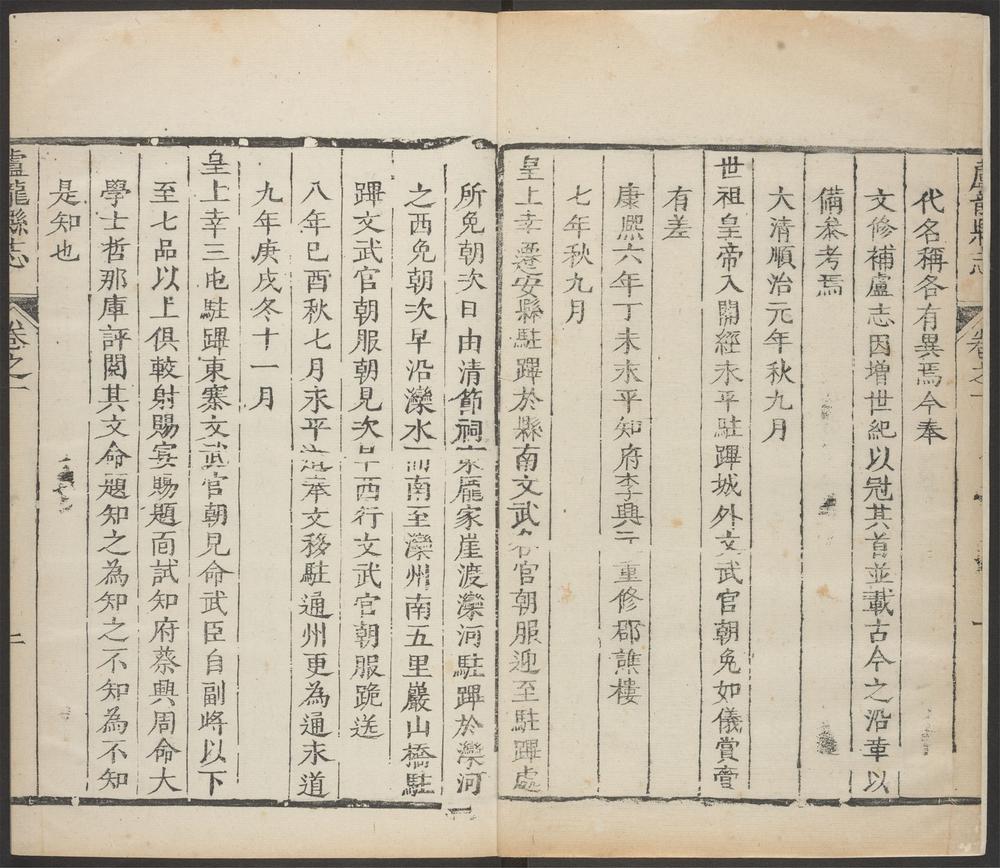 盧龍縣志
卷之一
代名稱各有異焉今奉
文修補盧志因增世紀以冠其首並載古今之沿革以
備叅考焉
大清順治元年秋九月
世祖皇帝入關經永平駐蹕城外文武官朝免如儀賞賚
有差
康熙六年丁未永平知府李興元重修郡譙樓
七年秋九月
皇上幸遷安縣駐蹕於縣南文武各官朝服迎至駐蹕處
所免朝次日由清節祠東龎家崖渡灤河駐蹕於灤河
之西免朝次早沿灤水西南至灤州南五里巖山橋駐
蹕文武官朝服朝見次早西行文武官朝服跪送
八年巳酉秋七月永平道奉文移駐通州更為通永道
九年庚戌冬十一月
皇上幸三屯駐蹕東寨文武官朝見命武臣自副將以下
至七品以上俱較射賜宴賜題面試知府蔡興周命大
學士哲那庫評閱其文命題知之為知之不知為不知
是知也
盧龍縣志
卷之一
二